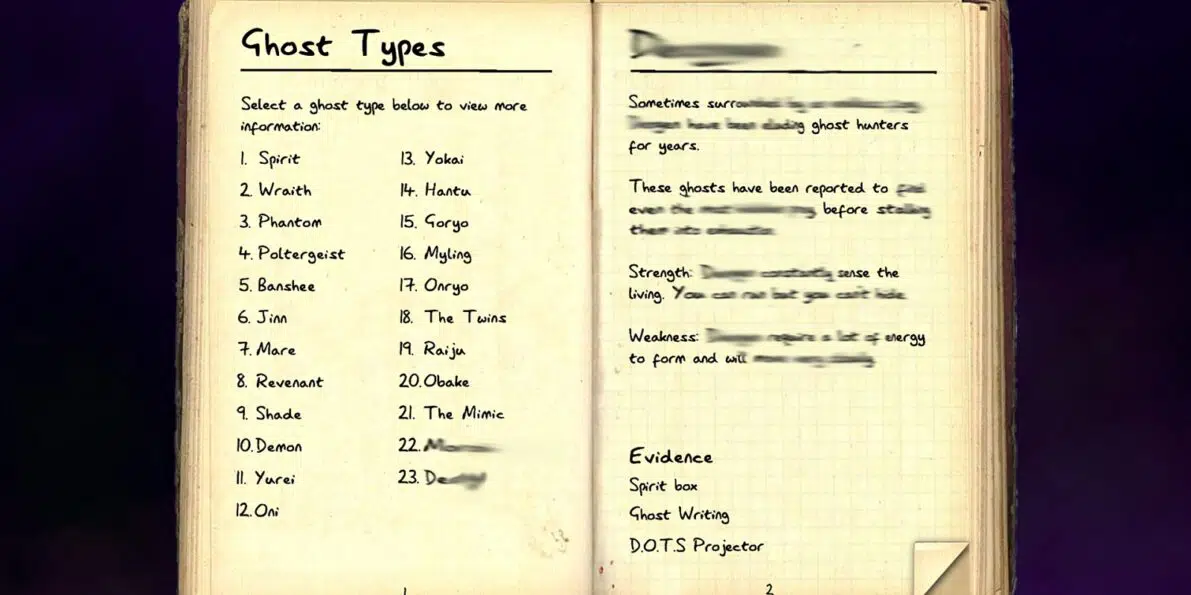 Ghost Types
Select a ghost type below to view more
information:
1. Spirit
2. Wraith
3. Phantom
4. Poltergeist
5. Banshee
6. Jinn
7. Mare
8. Revenant
9. Shade
10. Demon
11. Yurei
12. Oni
13. Yokai
14. Hantu
15. Goryo
16. Myling
17. Onryo
18. The Twins
19. Raiju
20. Obake
21. The Mimic
22.
23.
1
Sometimes
have been eluding ghost hunters
for years.
These ghosts have been reported to find
even the most before stalking
them into
Strength: constantly sense the
living. You can run but you can't hide.
Weakness: require a lot of energy
to form and will move very slowly.
Evidence
Spirit box
Ghost Writing
D.O.T.S Projector
2